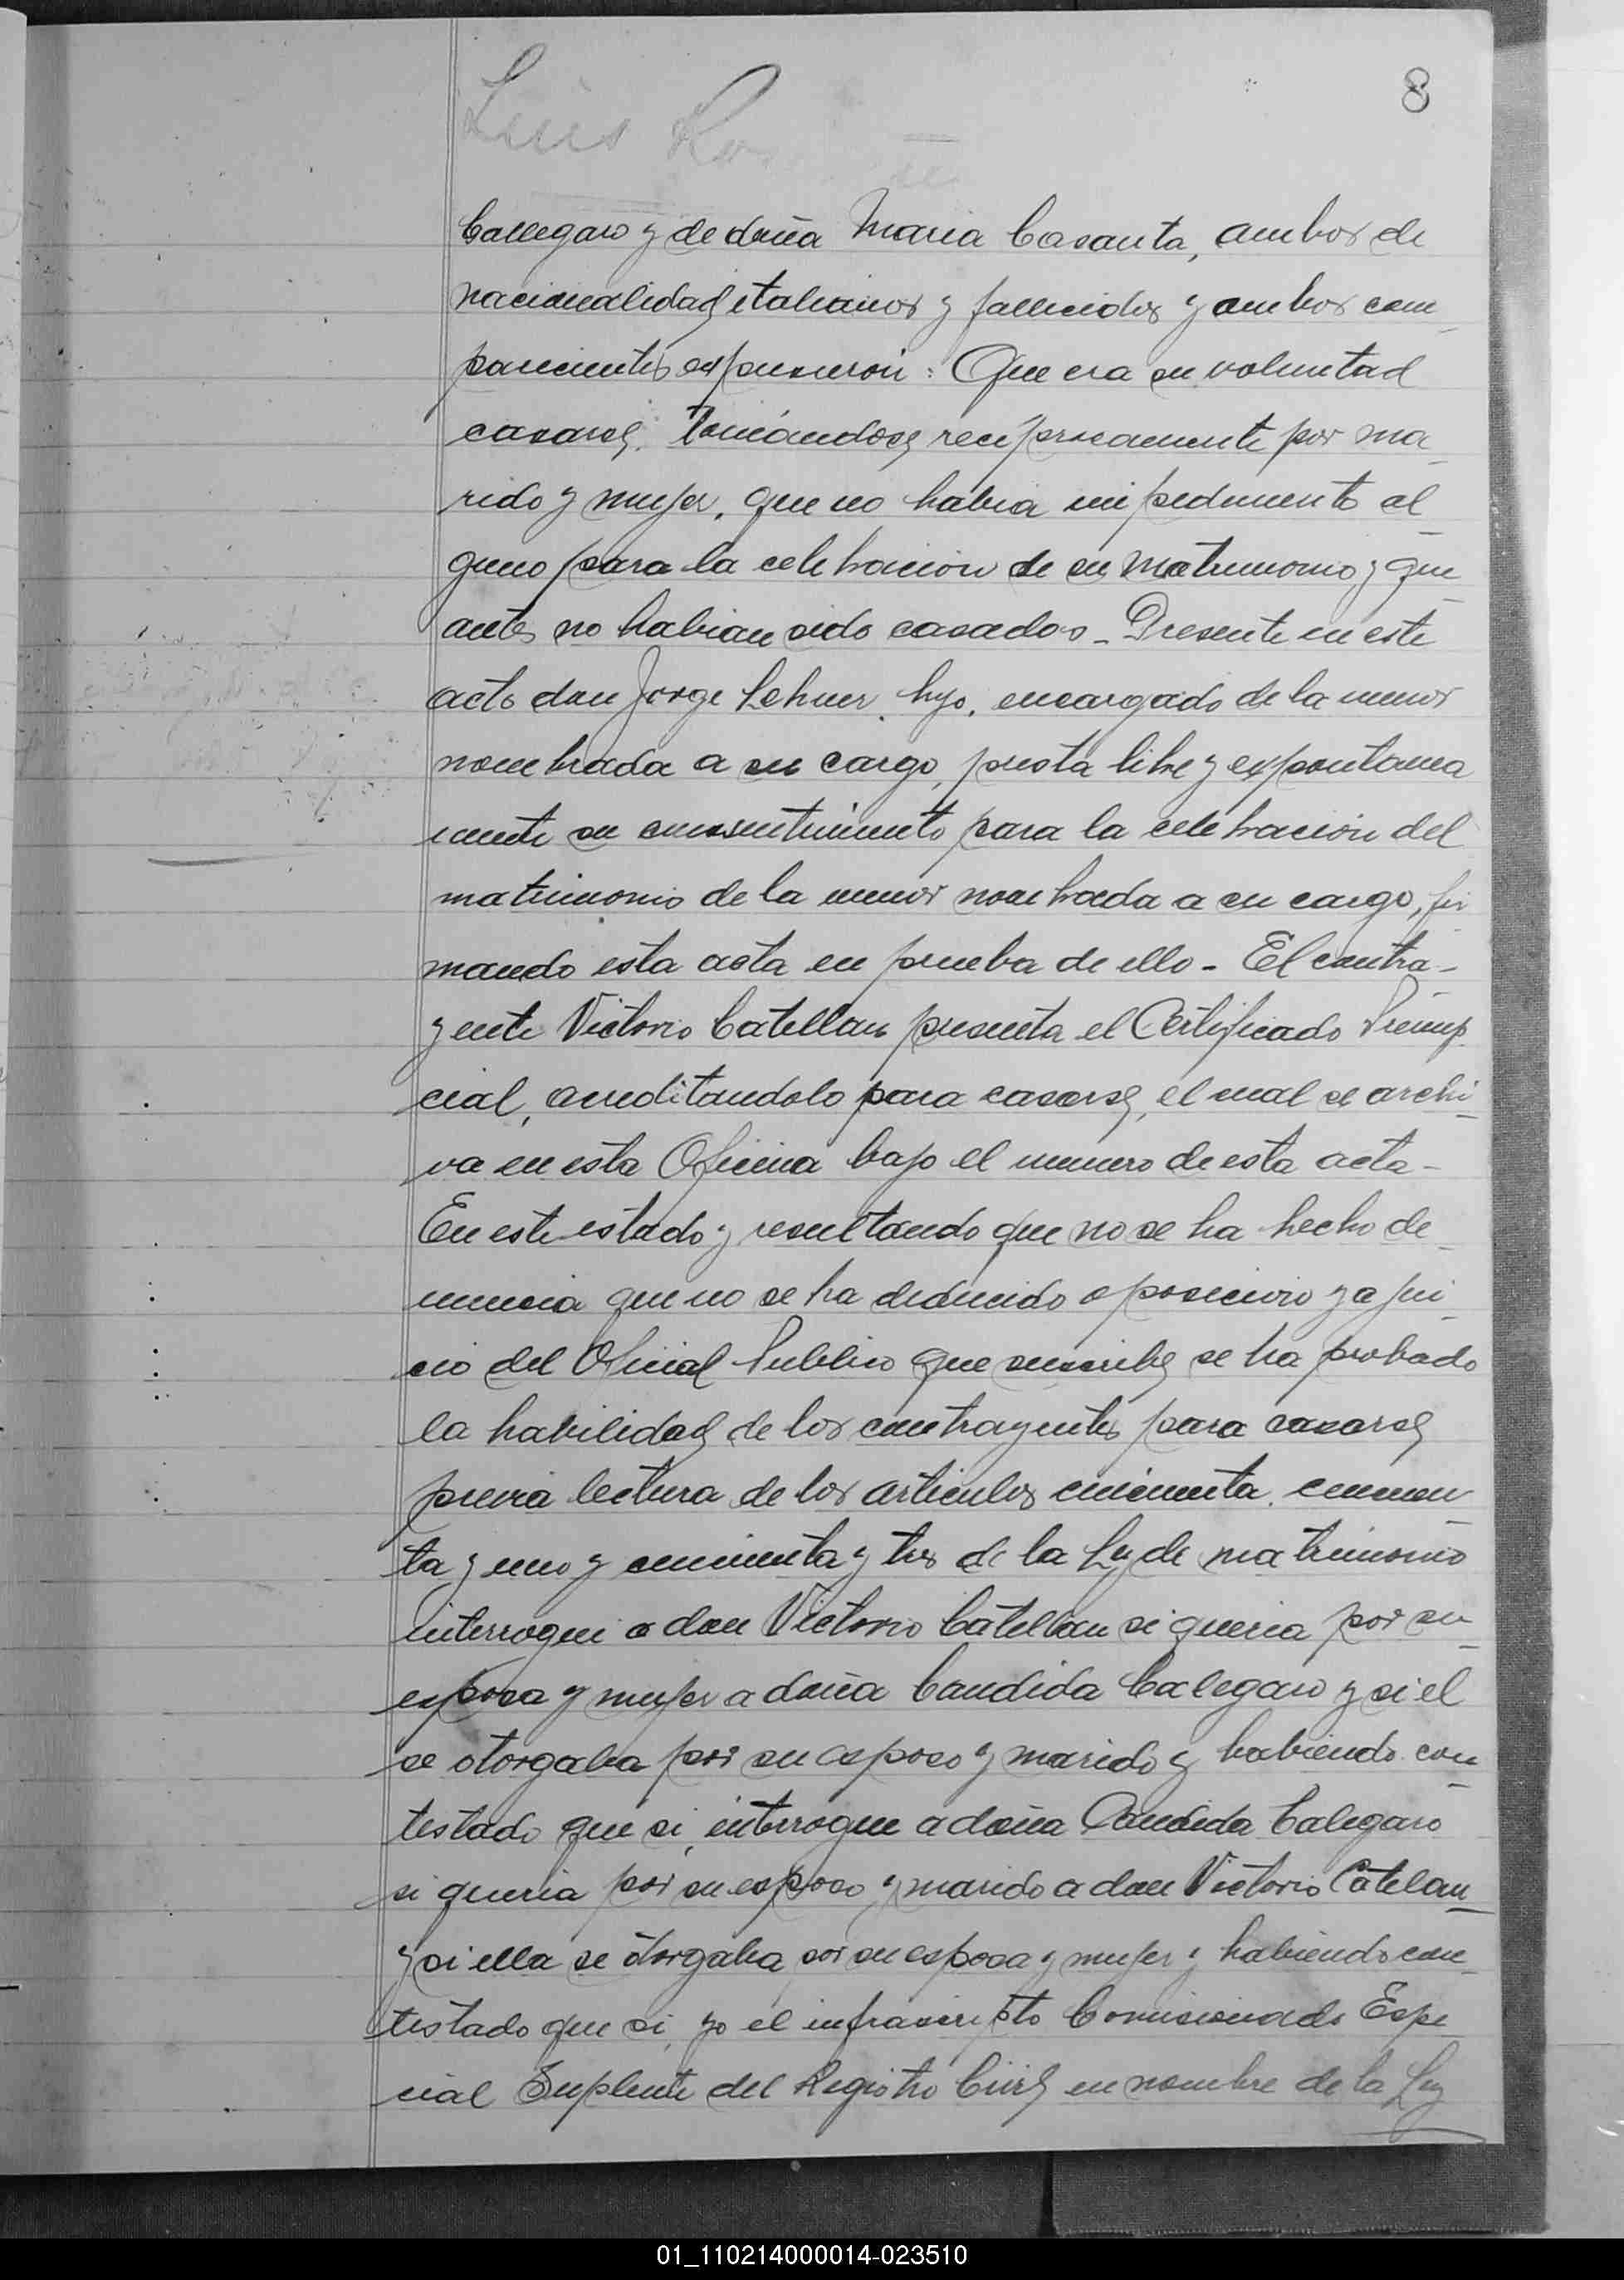 8
Luis
Callegaro y de doña Maria Casanta, ambos de
nacionalidad italianos y fallecidos y ambos com
parecientes expusieron: Que era su voluntad
casarse, tomándose reciprocamente por ma
rido y mujer, que no habia impedimento al
guno para la celebracion de su matrimonio y que
antes no habian sido casados - Presente en este
acto don Jorge Lehner, hijo, encargado de la menor
nombrada a su cargo, presta libre y expontanea
mente su consentimiento para la celebracion del
matrimonio de la menor nombrada a su cargo, fir
mando esta acta en prueba de ello - El contra-
yente Victorio Catellan presenta el Certificado
cial, acreditandolo para casarse, el cual se archi
va en esta Oficina bajo el numero de esta acta -
En este estado y resultando que no se ha hecho de
nuncia que no se ha deducido oposicion y a jui
cio del Oficial Publico que suscribe se ha probado
la habilidad de los contrayentes para casarse
previa lectura de los articulos cincuenta, cincuen
ta y uno y cincuenta y tres de la Ley de matrimonio
interrogue a don Victorio Catellan si queria por su
esposa y mujer a doña Candida Calegaro y si el
se otorgaba por su esposo y marido y habiendo con
testado que si, interrogue a doña Candida Calegaro
si queria por su esposo y marido a don Victorio Catelan
y si ella se otorgaba por su esposa y mujer y habiendo con
testado que si, yo el infrascripto Comisionado Espe
cial Suplente del Registro Civil en nombre de la Ley
01_110214000014-023510